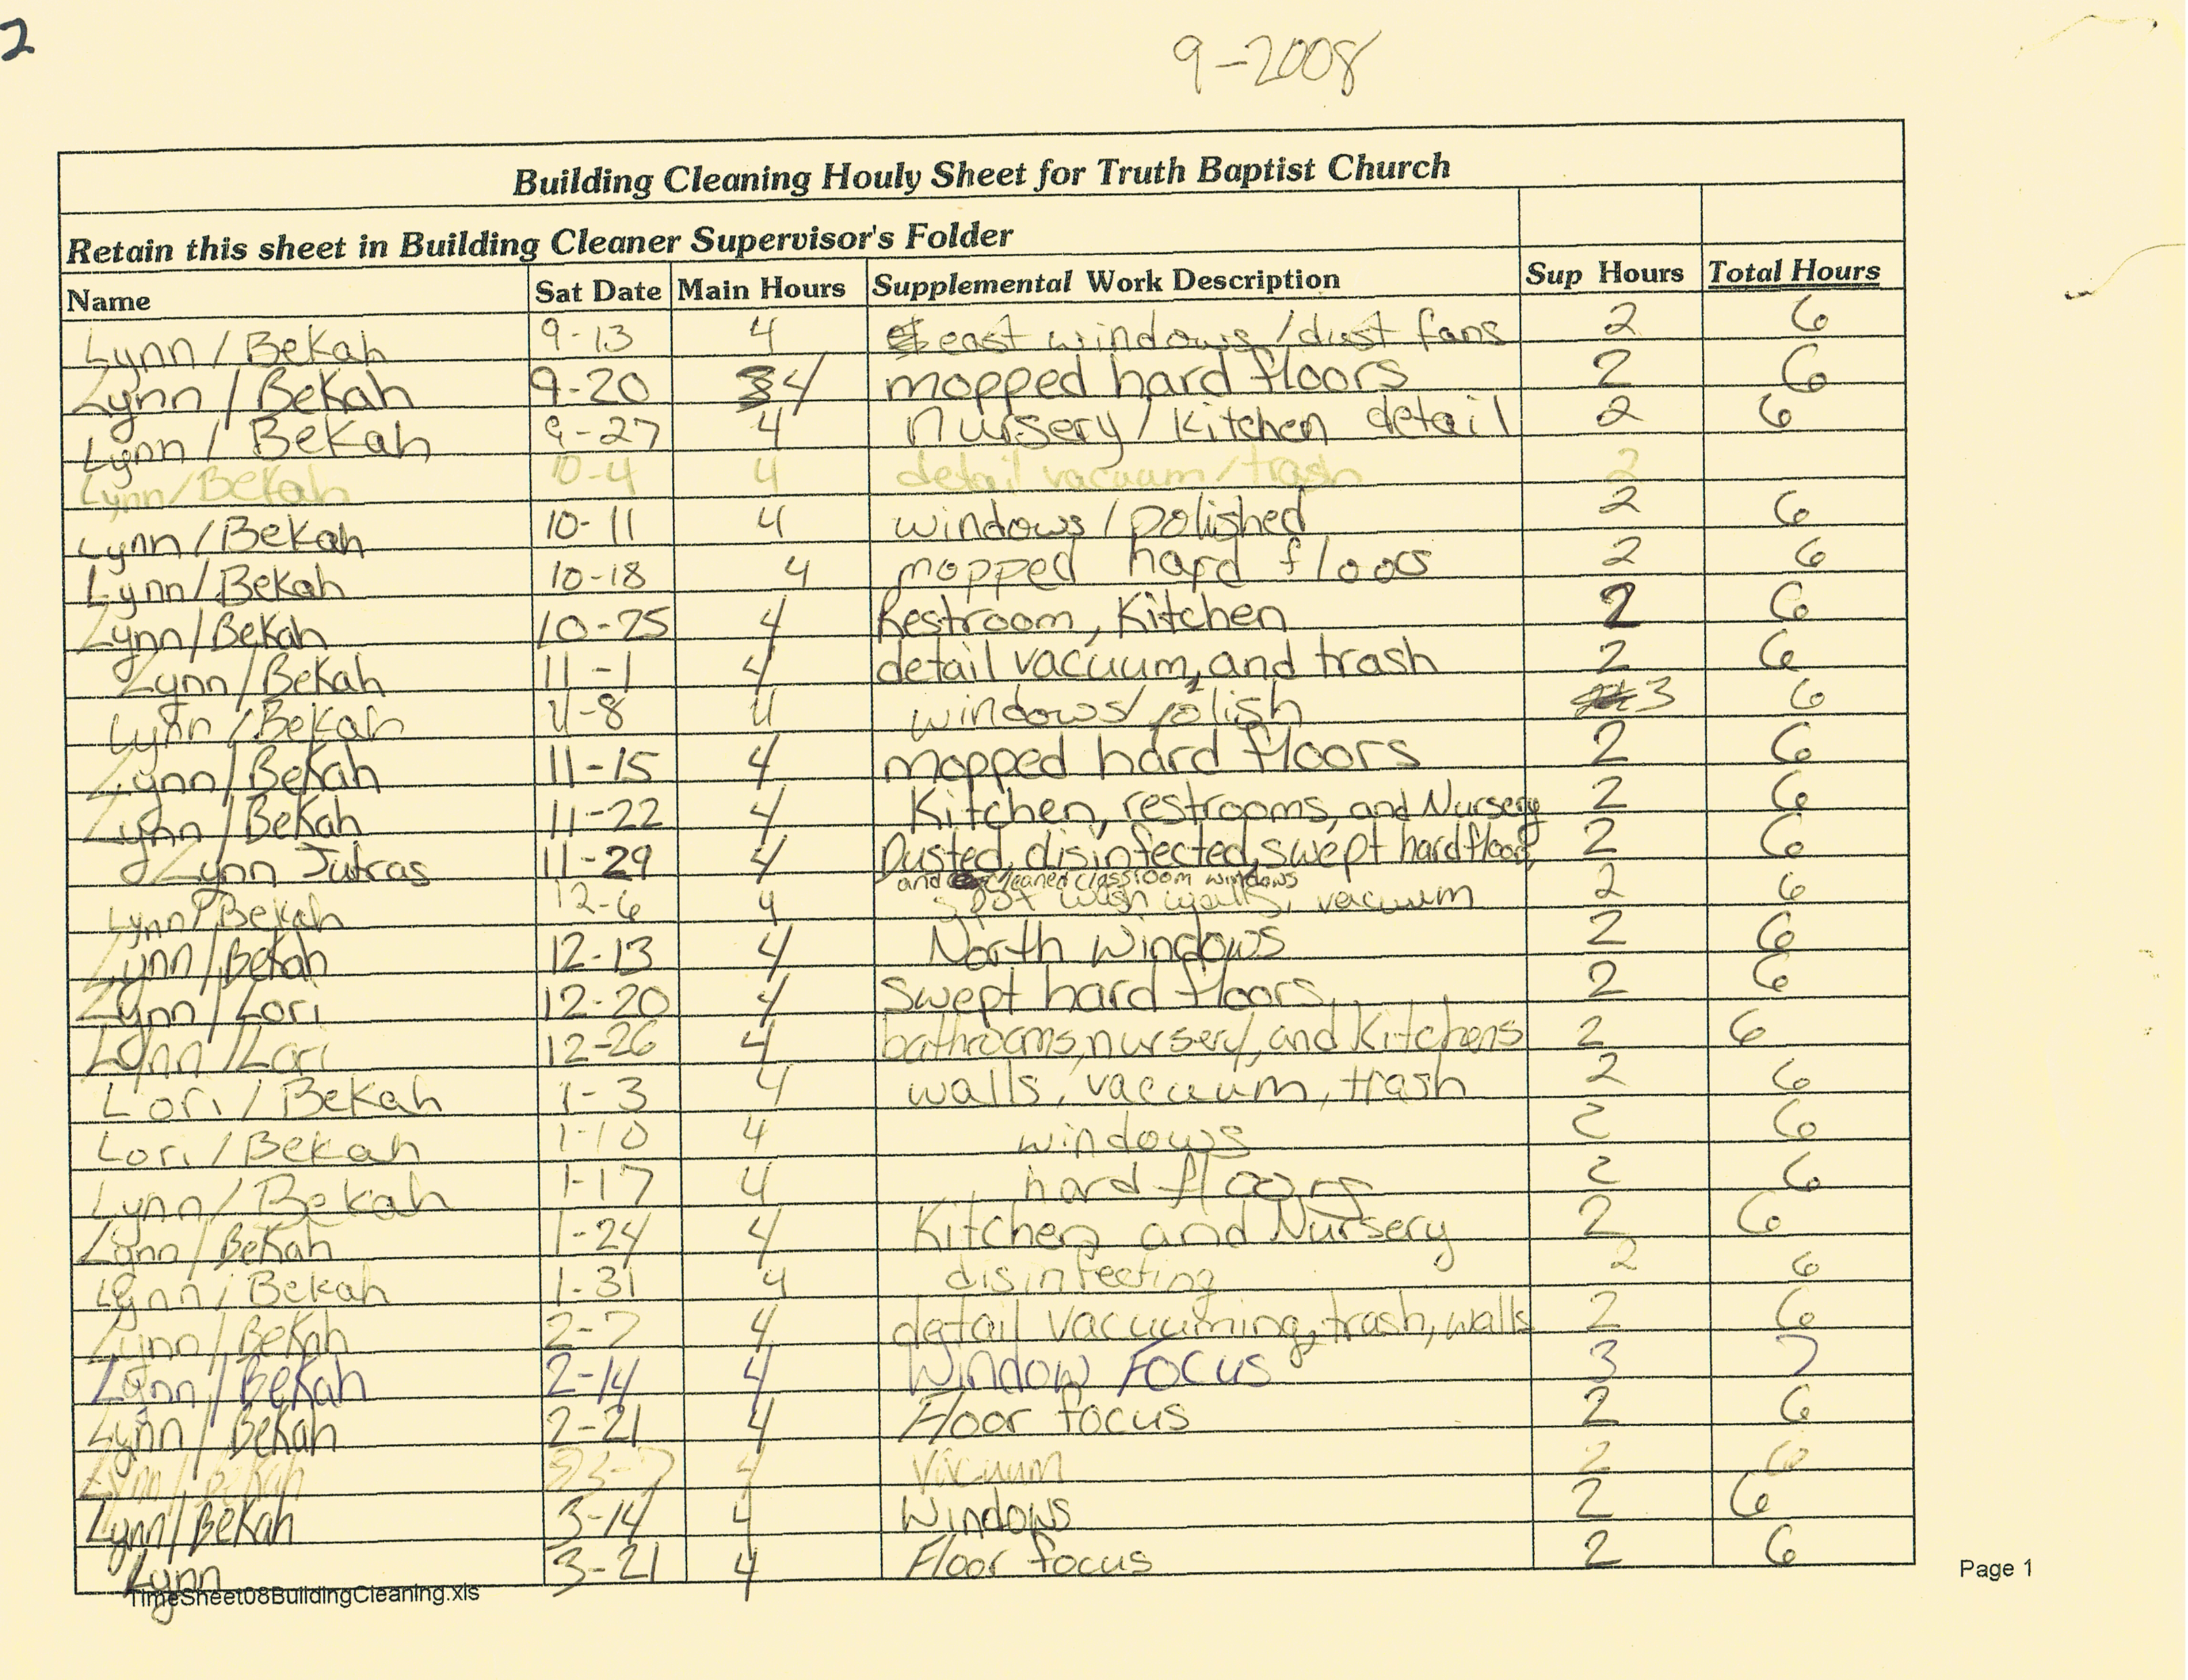 2
9-2008
Building Cleaning Houly Sheet for Truth Baptist Church
Retain this sheet in Building Cleaner Supervisor's Folder
Name Sat Date Main Hours Supplemental Work Description Sup Hours Total Hours
Lynn / Bekah 9-13 4 east windows / dust fans 2 6
Lynn / Bekah 9-20 4 mopped hard floors 2 6
Lynn / Bekah 9-27 4 Nursery / Kitchen detail 2 6
Lynn / Bekah 10-4 4 detail vacuum / trash 2
Lynn / Bekah 10-11 4 windows / polished 2 6
Lynn / Bekah 10-18 4 mopped hard floors 2 6
Lynn / Bekah 10-25 4 Restroom, Kitchen 2 6
Lynn / Bekah 11-1 4 detail vacuum, and trash 2 6
Lynn / Bekah 11-8 4 windows / polish 3 6
Lynn / Bekah 11-15 4 mopped hard floors 2 6
Lynn / Bekah 11-22 4 Kitchen, restrooms, and Nursery 2 6
Lynn Jutras 11-29 4 Dusted, disinfected, swept hard floors, 2 6
and cleaned classroom windows
Lynn / Bekah 12-6 4 spot wash walls, vacuum 2 6
Lynn / Bekah 12-13 4 North Windows 2 6
Lynn / Lori 12-20 4 Swept hard floors 2 6
Lynn / Lori 12-26 4 bathrooms, nursery, and Kitchens 2 6
Lori / Bekah 1-3 4 walls, vacuum, trash 2 6
Lori / Bekah 1-10 4 windows 2 6
Lynn / Bekah 1-17 4 hard floors 2 6
Lynn / Bekah 1-24 4 Kitchen and Nursery 2 6
Lynn / Bekah 1-31 4 disinfecting 2 6
Lynn / Bekah 2-7 4 detail Vacuuming, trash, walls 2 6
Lynn / Bekah 2-14 4 Window Focus 3 7
Lynn / Bekah 2-21 4 Floor focus 2 6
Lynn / Bekah 3-7 4 Vacuum 2 6
Lynn / Bekah 3-14 4 Windows 2 6
Lynn 3-21 4 Floor focus 2 6
TimeSheet08BuildingCleaning.xls
Page 1